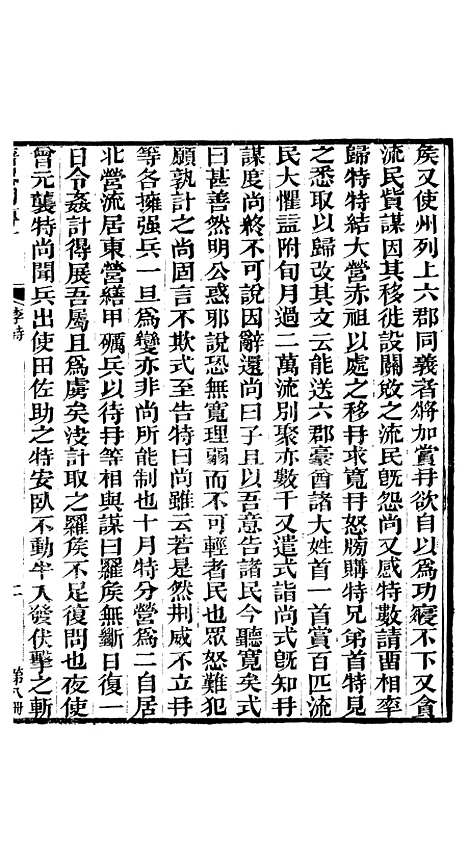 矦又使州列上六郡同義者將加賞冄欲自以爲功寢不下又貪
流民貲謀因其移徙設關放之流民旣怨尚又感特數請酉相率
歸特特結大營赤祖以處之移冄求寬冄怒牓購特兄弟首特見
之悉取以歸改其文云能送六郡豪酋諸大姓首一首賞百匹流
民大懼竝附旬月過二萬流別聚亦數千又遣式詣尚式旣知冄
謀度尚終不可說因辭還尚曰子且以吾意告諸民今聽寬矣式
曰甚善然明公惑邪說恐無寬理弱而不可輕者民也眾怒難犯
願孰計之尚固言不欺式至告特曰尚雖云若是然荆威不立冄
等各擁强兵一旦爲變亦非尚所能制也十月特分營爲二自居
北營流居東營繕甲礪兵以待冄等相與謀曰羅矦無斷日復一
日令姦計得展吾屬且爲虜矣決計取之羅矦不足復問也夜使
曾元襲特尚聞兵出使田佐助之特安臥不動半入發伏擊之斬
李特
二
第八冊